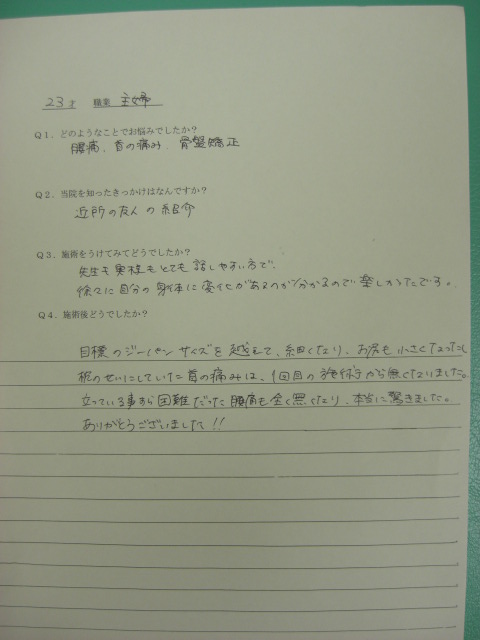 23才 職業 主婦
Q1．どのようなことでお悩みでしたか？
腰痛、首の痛み、骨盤矯正
Q2．当院を知ったきっかけはなんですか？
近所の友人の紹介
Q3．施術をうけてみてどうでしたか？
先生も奥様もとても話しやすい方で、
徐々に自分の身体に変化があるのが分かるので楽しかったです。
Q4．施術後どうでしたか？
目標のジーパンサイズを越えて、細くなり、お尻も小さくなったし
枕のせいにしていた首の痛みは、1回目の施術から無くなりました。
立っている事すら困難だった腰痛も全く無くなり、本当に驚きました。
ありがとうございました!!